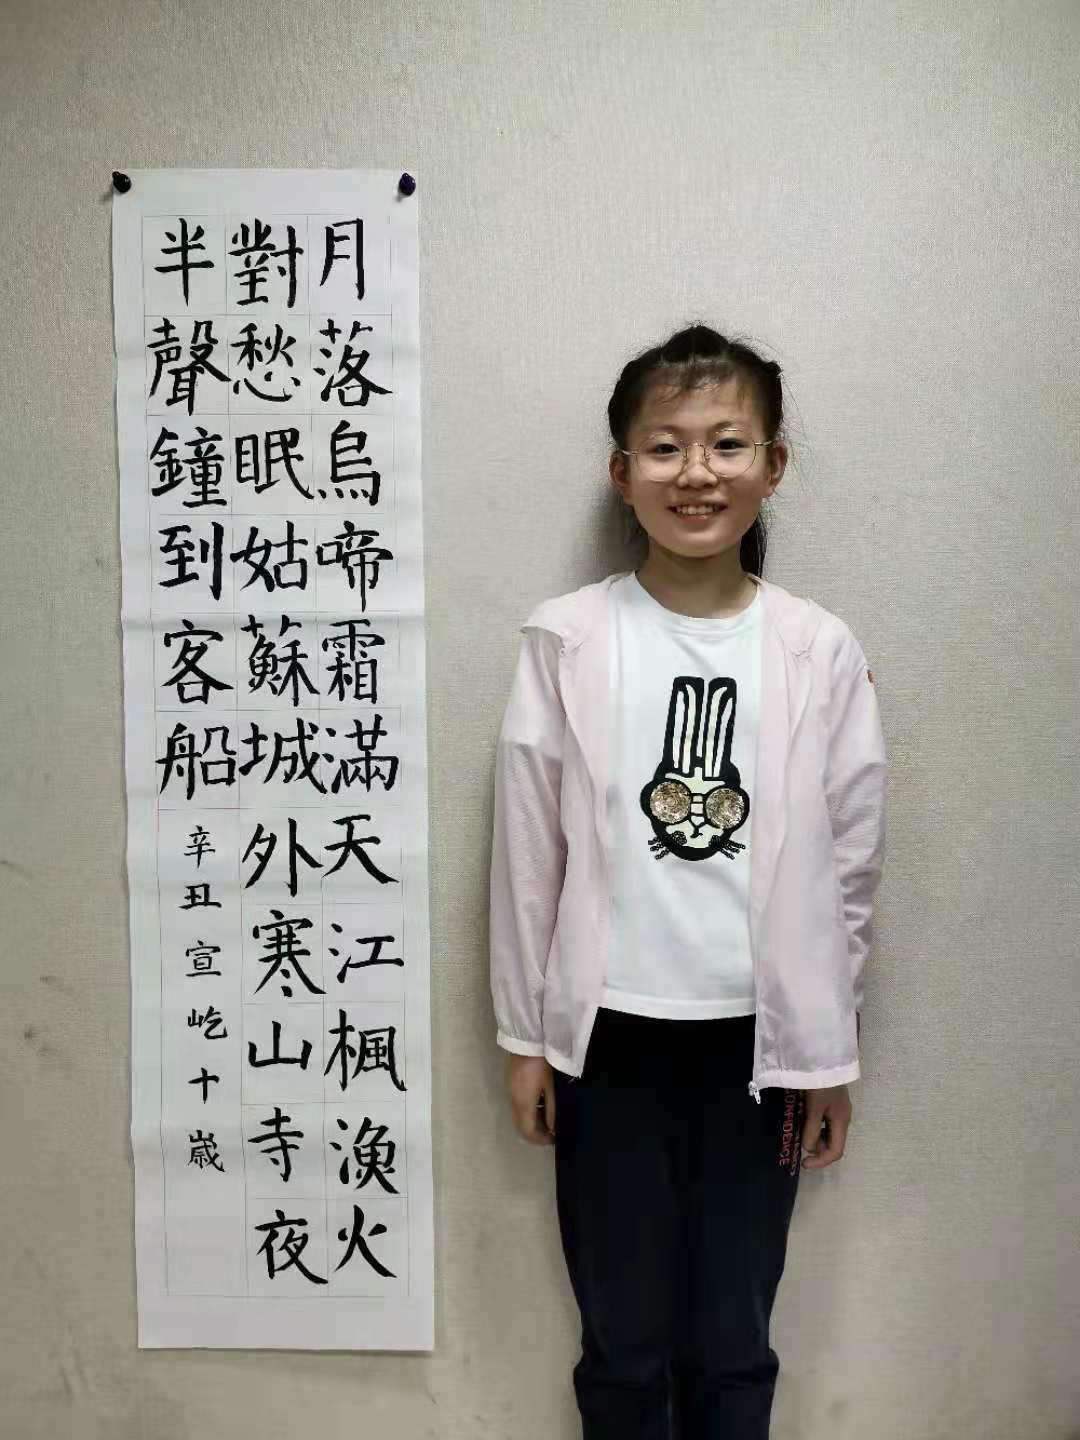 月落烏啼霜滿天江楓漁火
對愁眠姑蘇城外寒山寺夜
半聲鐘到客船
辛丑宣屹十歲
CONFIDENCE